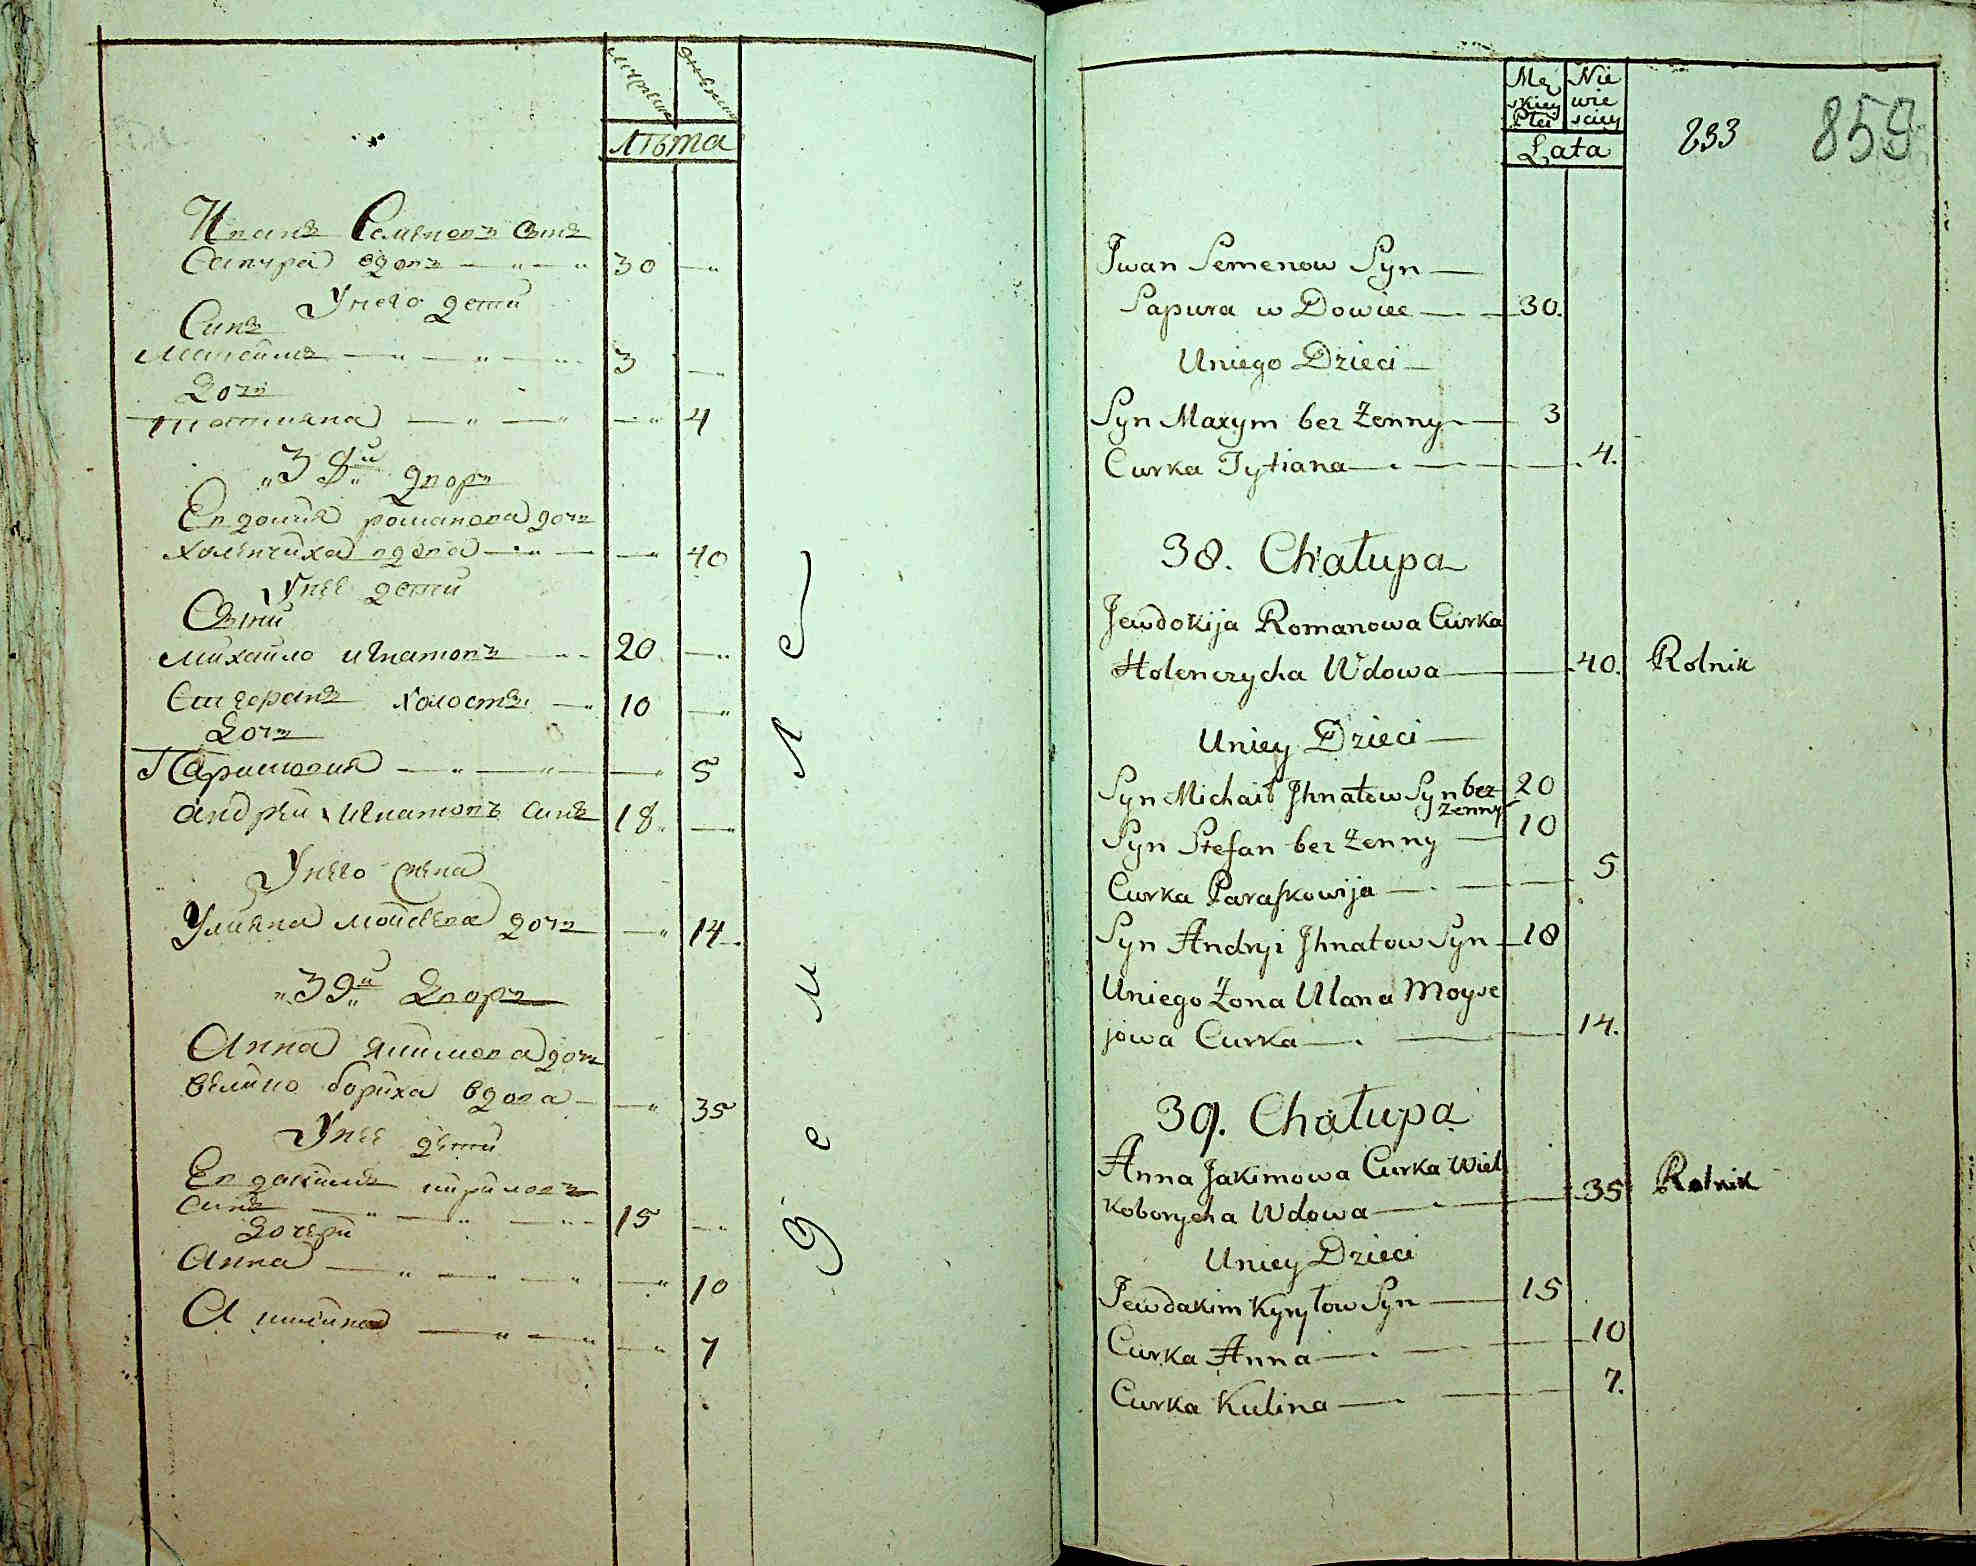 Лѣта
Иванъ Семеновъ сынъ
Сапура вдовъ 30
У него дети
Синъ
Максимъ 3
Дочь
Тотияна 4
"38й" дворъ
Евдокия романова дочь
холенчиха вдова 40
У нее дети
Сыни
михайло игнатовъ 20
Стеѳанъ холостъ 10
Дочь
Парасковия 5
андрѣй игнатовъ синъ 18
У него жена
Улияна мойсеева дочь 14
"39й" дворъ
Анна якимова дочь
велико бориха вдова 35
У нее дѣти
Евдокимъ кириловъ
синъ 15
Дочери
Анна 10
Акилина 7
демля
Mę Nie
skiey wie
Płci sciey
Lata
233 859
Jwan Semenow Syn
Sapura w Dowiec 30.
Uniego Dzieci
Syn Maxym bez Zenny 3
Curka Tytiana 4.
38. Chałupa
Jewdokija Romanowa Curka
Holenczycha Wdowa 40. Rolnik
Uniey Dzieci
Syn Michaił Jhnatow Syn bez 20
Zenny
Syn Stefan bez Zenny 10
Curka Paraskowija 5
Syn Andryi Jhnatow Syn 18
Uniego Zona Ulana Moyse
jowa Curka 14.
39. Chałupa
Anna Jakimowa Curka Wiel
koborycha Wdowa 35 Rolnik
Uniey Dzieci
Jewdakim Kyryłow Syn 15
Curka Anna 10
Curka Kulina 7.